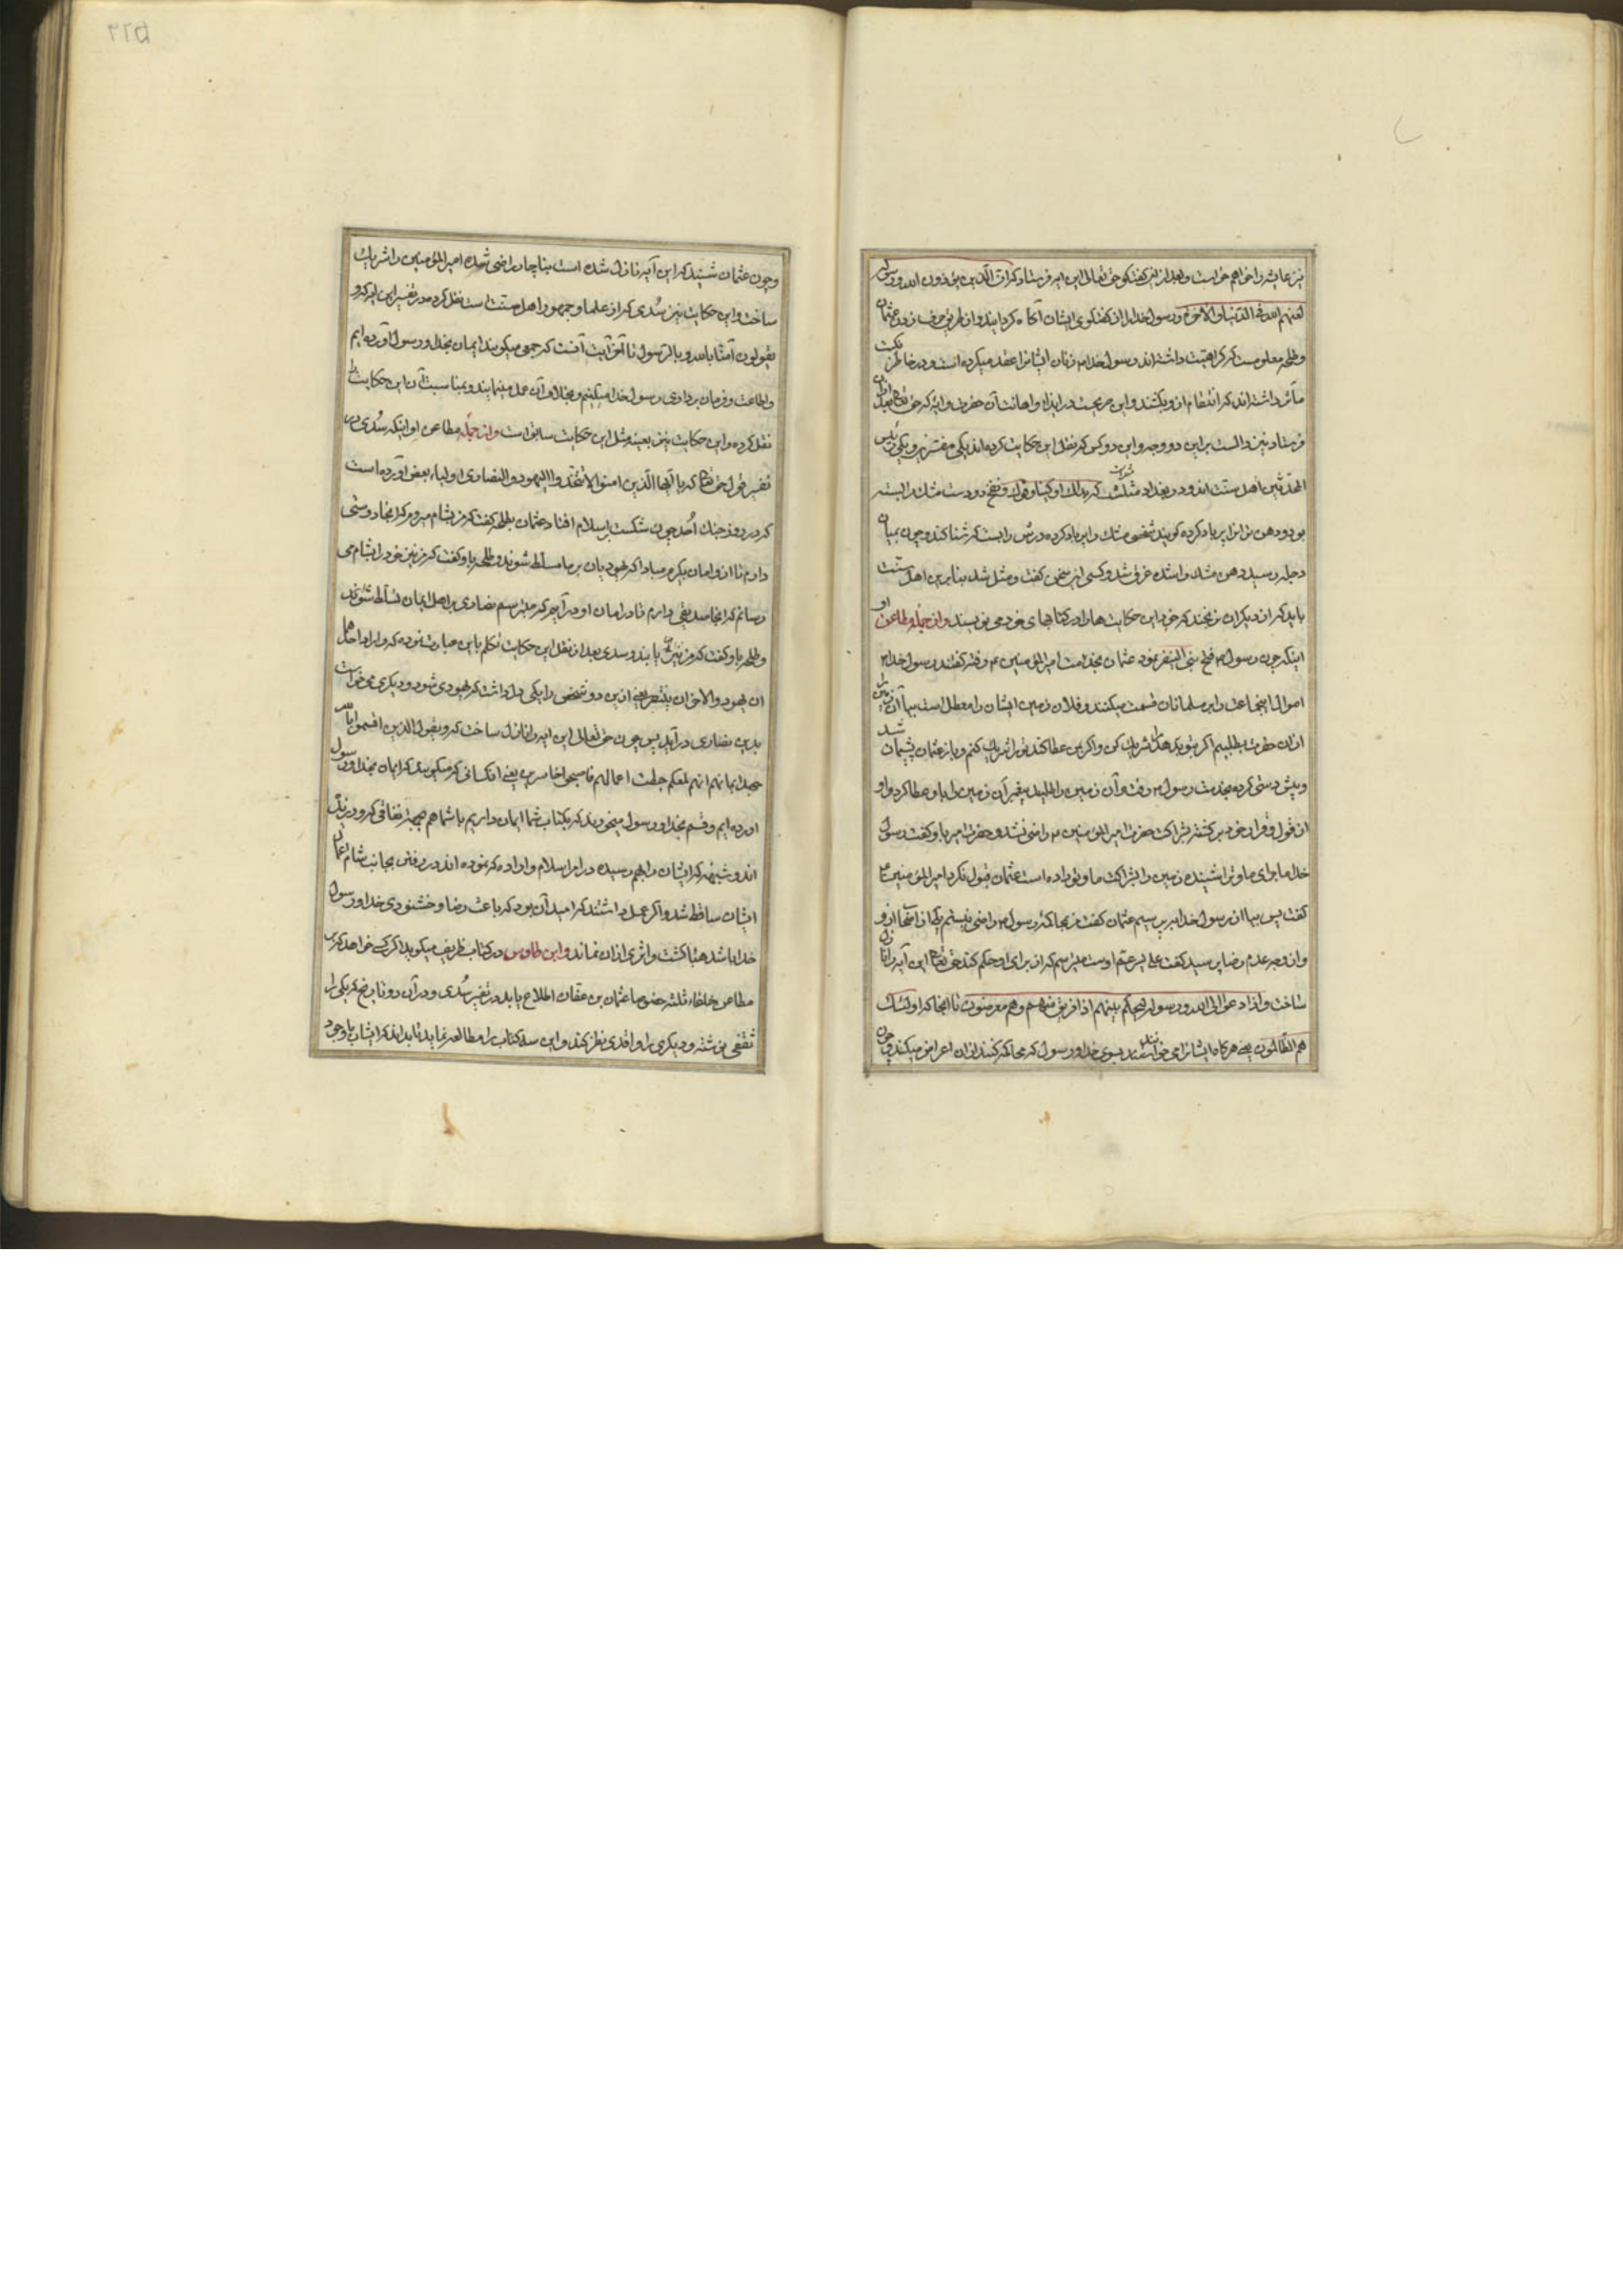 نیز عایشه را خواهم خواست و بعد از این گفتگو حق تعالی این آیه فرستاد که ان الذین یؤذون الله ورسوله
لعنهم الله فی الدنیا والآخرة و رسول خدا را از گفتگوی ایشان آگاه گردانید و از طریق حرف زدن عثمان
و طلحه معلومست که کراهیت داشته‌اند و رسول خدا م زنان ایشانرا عقد میکرده است و در خاطر
داشته‌اند که انتقام از و بکشند و این صریحست در ایذا و اهانت آن حضرت و آیه که حق تعالی
فرستاد نیز دالست بر این دو وجه و این دو کس که نقل این حکایت کرده‌اند یکی مفسرین و یکی
المحدثین اهل سنت‌اند و در بغداد مثلست که یداک اوکتا و فوک نفخ دو دست مشک را بسته
بود و دهن تو انرا پر باد کرده گویند شخصی مشک را پر باد کرده درش را بست که شنا کند و چون بمیان
دجله رسید دهن مشک وا شده غرق شد و کسی این سخن گفت و مثل شد بنابرین اهل سنت
باید که از دیگران نرنجند که خود این حکایت‌ها را در کتابهای خود می نویسند و از جمله مطاعن او
اینکه چون رسول م فتح بنی النضیر نمود عثمان بخدمت امیر المؤمنین ع رفته گفتند رسول خدا م
اموال این جماعت را بر مسلمانان قسمت میکند و فلان زمین ایشان را معطل است بیا آن زمین را
از آن حضرت بطلبیم اگر بتو بدهد مرا شریک کن و اگر بمن عطا کند تو را شریک کنم و باز عثمان پشیمان شد
و پیش دستی کرده بخدمت رسول م رفت و آن زمین را طلبید پیغمبر آن زمین را باو عطا کرد و او
از قول و قرار خود برگشته بشراکت حضرت امیر المؤمنین ع راضی نشد و حضرت امیر باو گفت رسول
خدا ماجرای ما و ترا شنیده زمین را بشراکت ما و تو داده است عثمان قبول نکرد امیر المؤمنین ع
گفت پس بیا از رسول خدا بپرسیم عثمان گفت من بمحاکمه رسول م راضی نیستم
و از وجه عدم رضا پرسید گفت علی پسر عم اوست میترسم که از برای او حکم کند حق تعالی این آیه را نازل
ساخت واذا دعوا الی الله ورسوله لیحکم بینهم اذا فریق منهم وهم معرضون تا آنجا که اولئک
هم الظالمون یعنی هرگاه ایشانرا می‌خوانند بسوی خدا و رسول که محاکمه کنند از آن اعراض میکنند
و چون عثمان شنید که این آیه نازل شده است بناچار راضی شده امیر المؤمنین را شریک
ساخت و این حکایت نیز سُدی که از علما و جمهور اهل سنت است نقل کرده در تفسیر این آیه که و
یقولون آمنا بالله و بالرسول تا آخر آیت آنست که جمعی میگویند ایمان بخدا و رسول آورده ایم
و اطاعت و فرمان برداری رسول خدا میکنیم و بخلاف آن عمل مینمایند و بمناسبت آن این حکایت را
نقل کرده و این حکایت نیز بعینه مثل این حکایت سابق است و از جمله مطاعن او اینکه سُدی در
تفسیر قول حق تعالی که یا ایها الذین امنوا لا تتخذوا الیهود والنصاری اولیاء بعض آورده است
که در روز جنک اُحد چون شکست بر اسلام افتاد عثمان بطلحه گفت که من بشام میروم که آنجا دوستی
دارم تا از و امان بگیرم مبادا که یهودیان بر ما مسلط شوند و طلحه باو گفت که من نیز خود را بشام می
رسانم که آنجا صدیقی دارم تا در امان او در آیم که میترسم نصاری بر اهل ایمان تسلط شوند
و طلحه باو گفت که من نیز و سدی بعد از نقل این حکایت تکلم باین عبارت نموده که فاراد احدهما
ان یهود والآخر ان ینتصر یعنی از ین دو شخص را یکی اراده داشت که یهودی شود و دیگری می خواست
بدین نصاری در آید پس چون حق تعالی این آیه را نازل ساخت که و یقول الذین اقسموا بالله
جهد ایمانهم انهم لمعکم حبطت اعمالهم فاصبحوا خاسرین یعنی آنکسانی که میگویند که ایمان بخدا و رسول
آورده ایم و قسم بخدا و رسول میخورند که بکتاب شما ایمان داریم با شما هم بجهت نفاقی که ورزیده
اند و شبهه که ایشان را بهم رسیده در امر اسلام و اراده که نموده اند در رفتن بجانب شام اعمال
ایشان ساقط شد و اگر عمل داشتند که امید آن بود که باعث رضا و خشنودی خدا و رسول
خدا باشد هبا گشت و اثری از آن نماند و ابن طاوس در کتاب طریف میگوید اگر کسی خواهد که بر
مطاعن خلفاء ثلثه خصوصا عثمان بن عفان اطلاع یابد در تفسیر سُدی و در آن دو تاریخ که یکی را
ثقفی نوشته و دیگری را واقدی نظر کند و این سه کتاب را مطالعه نماید تا بداند که ایشان با وجود